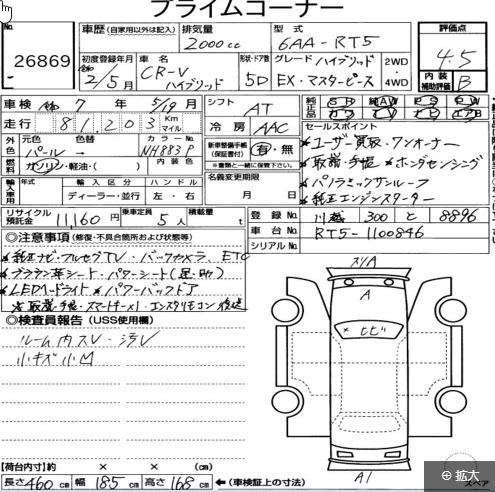 プライムコーナー
No. 26869
車歴 (自家用以外は記入) 排気量 2000cc 型式 6AA-RT5 評価点 4.5
初度登録年月 2/5月 車名 CR-V ハイブリッド 形状・ドア数 5D グレード ハイブリッド EX・マスターピース 2WD・4WD 内装補助評価 B
車検 7年 5/19月 シフト AT 純正品 SR AW PS PW
走行 81,203 Km マイル 冷房 AAC セールスポイント
外色 元色 パール 色替→ カラーNo. NH883P 新車整備手帳(保証書付) 有・無 ★ユーザー買取・ワンオーナー
燃料 ガソリン・軽油・( ) 内装色 ★取説・手帳 ★ホンダセンシング
輸入車用 年式 輸入区分 ディーラー・並行 ハンドル 左・右 名義変更期限 月 日 ★パノラミックサンルーフ
★純正エンジンスターター
リサイクル預託金 11,160円 乗車定員 5人 積載量 t 登録No. 川越 300 と 8896
◎注意事項 (修復・不具合箇所および状態等) 車台No. RT5-1100846
シリアルNo.
★純正ナビ・フルセグTV・バックカメラ ETC
★ブラウン革シート・パワーシート(足・助)
★LEDヘッドライト ★パワーバックドア
★取説・手帳・スマートキー×1・エンスタリモコン 後送
◎検査員報告 (USS使用欄)
ルーム内スレ・汚レ
小キズ小凹
スリA
A
×ヒビ
A1
スペア
【荷台内寸】約 × × (cm)
長さ 460 cm 幅 185 cm 高さ 168 cm ←(車検証上の寸法)
拡大